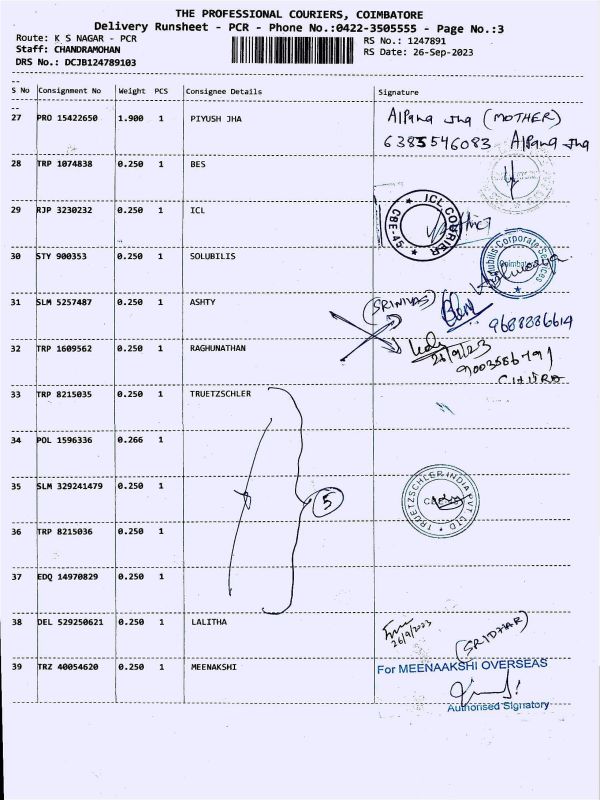 THE PROFESSIONAL COURIERS, COIMBATORE
Delivery Runsheet - PCR - Phone No.:0422-3505555 - Page No.:3
Route: K S NAGAR - PCR
RS No.: 1247891
Staff: CHANDRAMOHAN
RS Date: 26-Sep-2023
DRS No.: DCJB124789103
S No Consignment No Weight PCS Consignee Details Signature
27 PRO 15422650 1.900 1 PIYUSH JHA
Alpana Jha (MOTHER)
6385546083 Alpana Jha
28 TRP 1074838 0.250 1 BES
29 RJP 3230232 0.250 1 ICL
ICL COURIER
CBE-45
30 STY 900353 0.250 1 SOLUBILIS
Solubilis Corporate Services
Coimbatore
31 SLM 5257487 0.250 1 ASHTY
(SRINIVAS)
9688886614
32 TRP 1609562 0.250 1 RAGHUNATHAN
26/9/23
9003586791
33 TRP 8215035 0.250 1 TRUETZSCHLER
34 POL 1596336 0.266 1
35 SLM 329241479 0.250 1
5
TRUETZSCHLER INDIA PVT LTD
36 TRP 8215036 0.250 1
37 EDQ 14970829 0.250 1
38 DEL 529250621 0.250 1 LALITHA
26/9/2023
(SRIDHAR)
39 TRZ 40054620 0.250 1 MEENAKSHI
For MEENAAKSHI OVERSEAS
Authorised Signatory